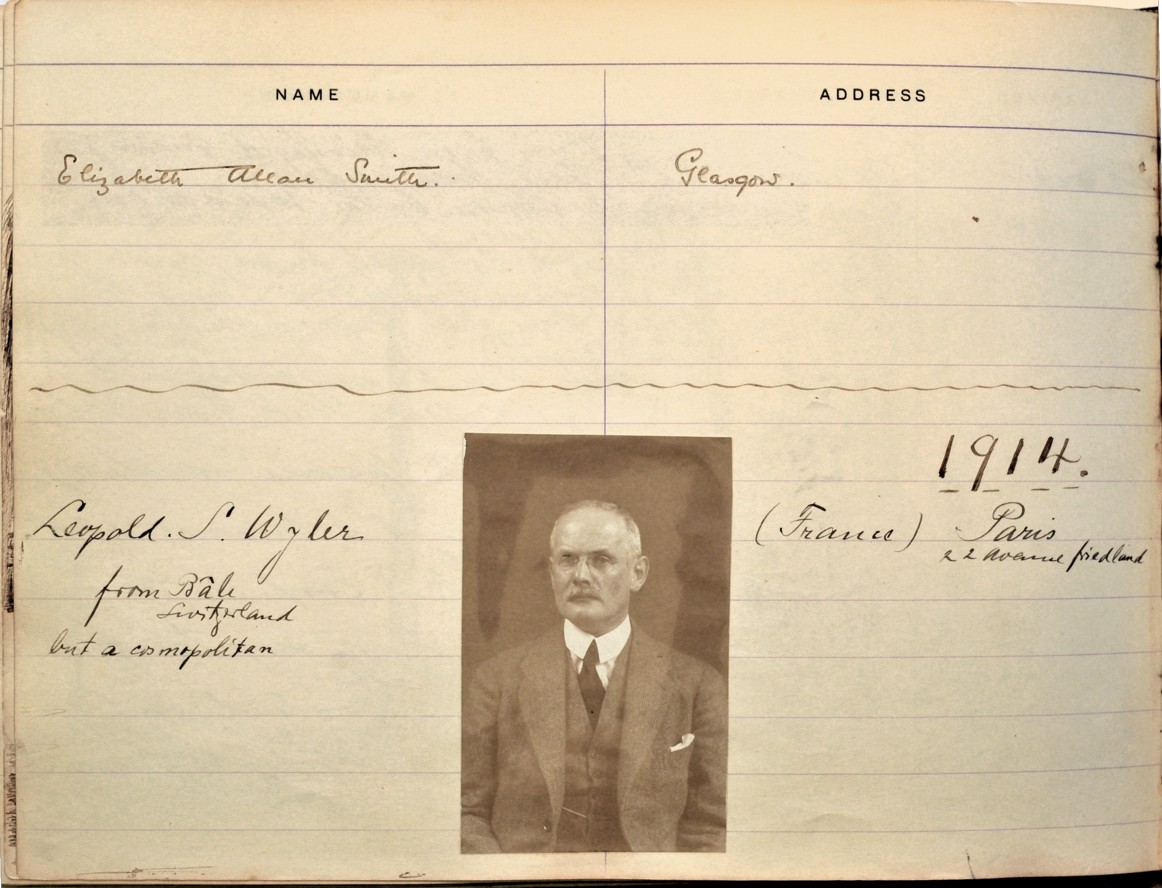 NAME ADDRESS
Elizabeth Allan Smith. Glasgow.
1914.
Leopold. S. Wyler (France) Paris
22 avenue friedland
from Bâle
Switzerland
but a cosmopolitan